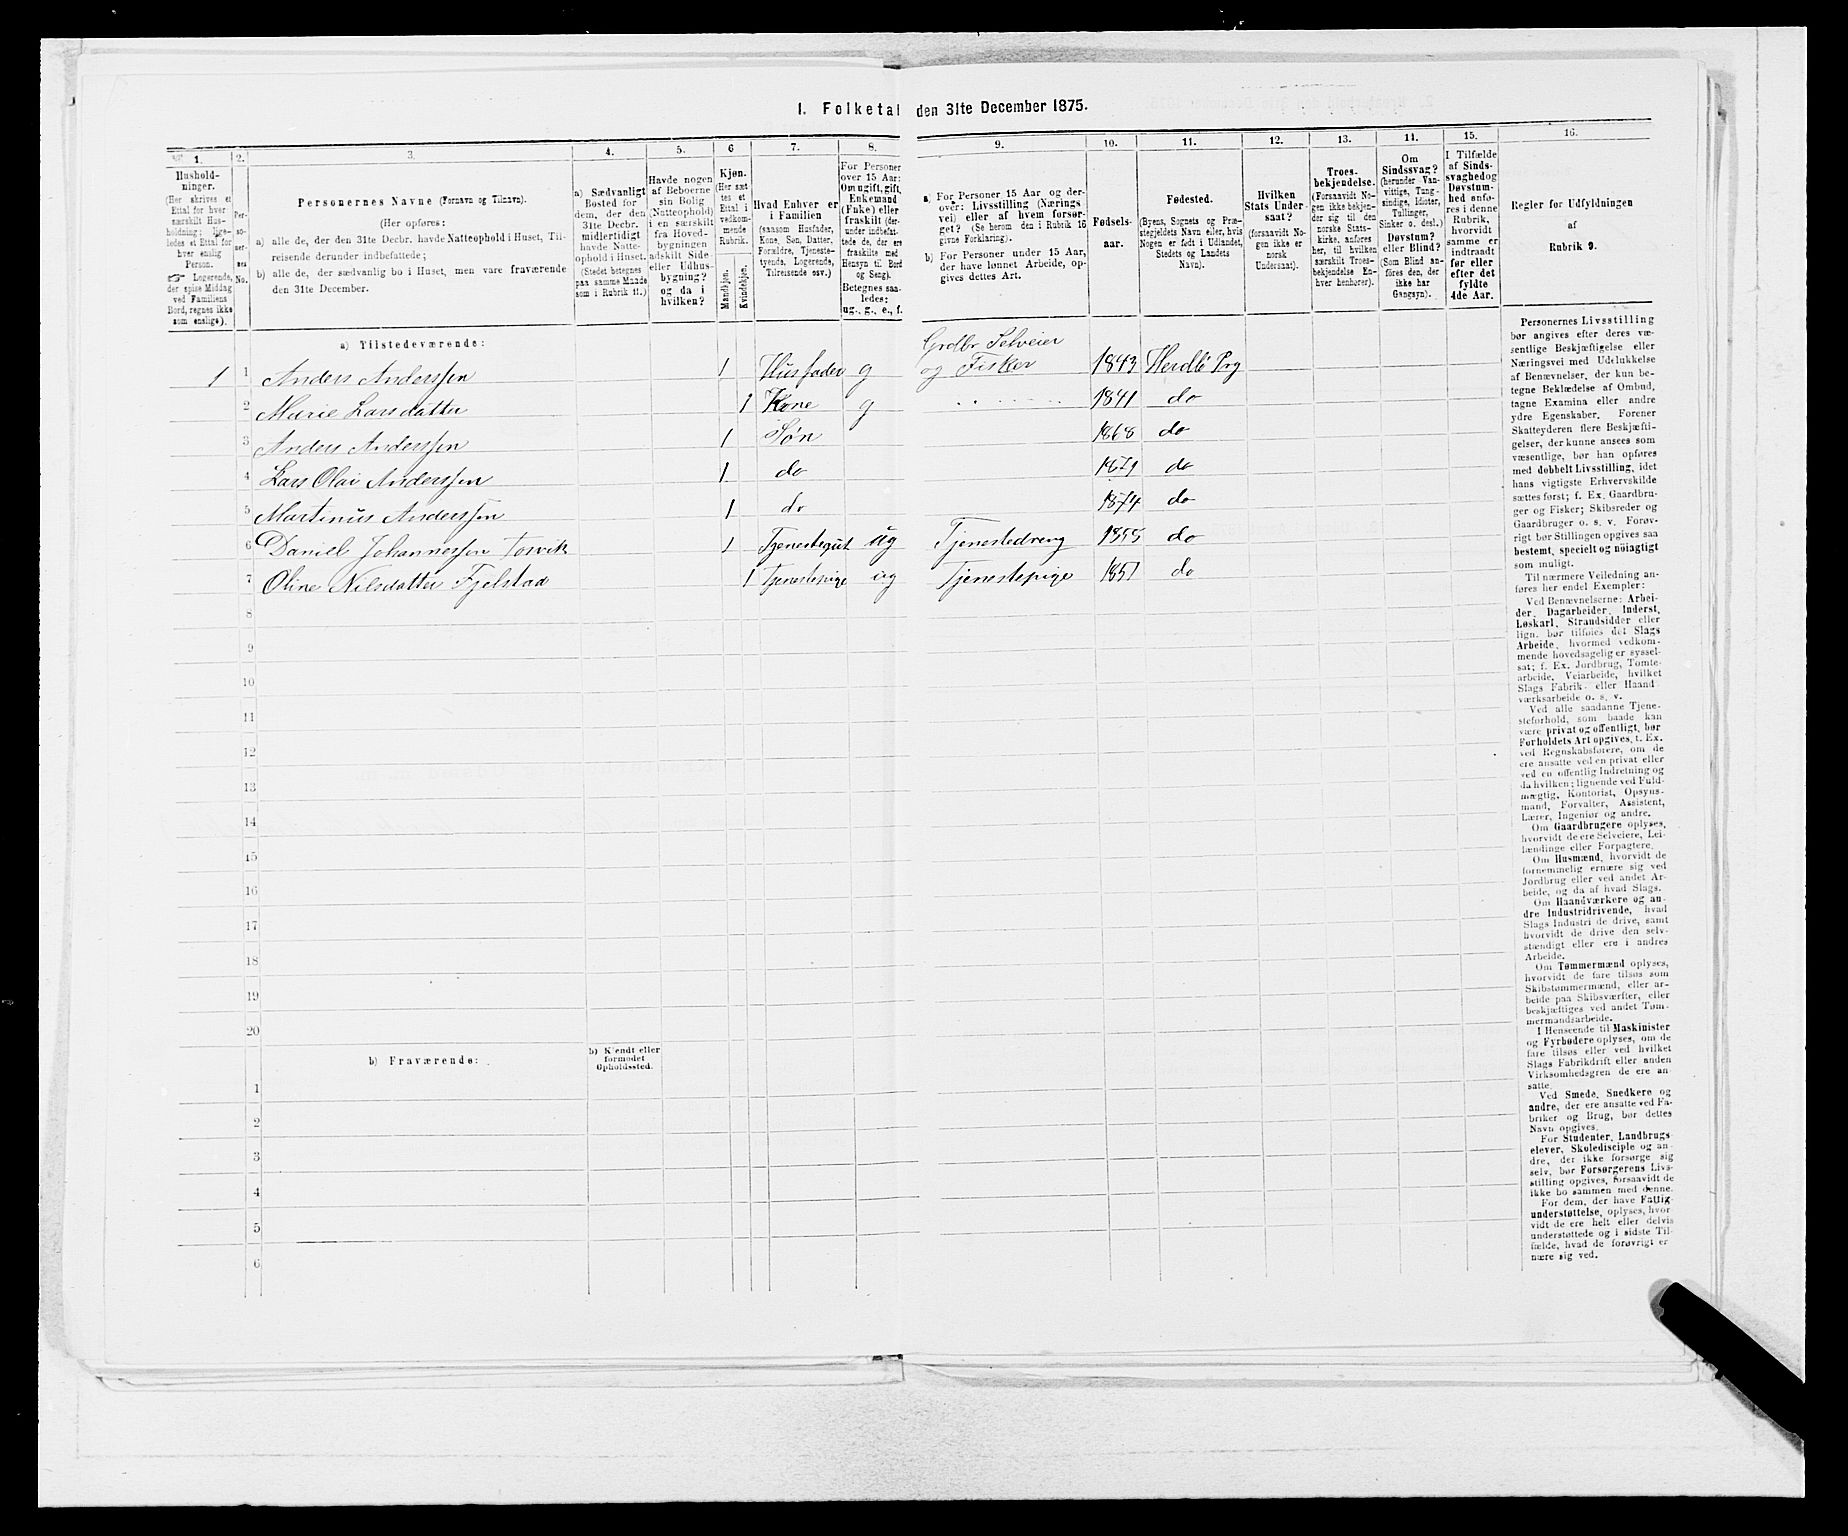 1. Folketal den 31te December 1875.
1. 2. 3. 4. 5. 6 7. 8. 9. 10. 11. 12. 13. 14. 15. 16.
Hushold-
ninger.
(Her skrives et
Ettal for hver
særskilt Hus-
holdning; lige-
ledes et Ettal for
hver enslig
Person.
☞ Logerende,
der spise Middag
ved Familiens
Bord, regnes ikke
som enslige).
Per-
so-
ner-
nes
No.
Personernes Navne (Fornavn og Tilnavn).
(Her opføres:
a) alle de, der den 31te Decbr. havde Natteophold i Huset, Til-
reisende derunder indbefattede;
b) alle de, der sædvanlig bo i Huset, men vare fraværende
den 31te December.
a) Sædvanligt
Bosted for
dem, der den
31te Decbr.
midlertidigt
havde Natte-
ophold i Huset.
(Stedet betegnes
paa samme Maade
som i Rubrik 11.)
Havde nogen
af Beboerne
sin Bolig
(Natteophold)
i en særskilt
fra Hoved-
bygningen
adskilt Side-
eller Udhus-
bygning?
og da i
hvilken?
Kjøn.
(Her sæt-
tes et
Ettal i
vedkom-
mende
Rubrik.
Mandkjøn.
Kvindekjøn.
Hvad Enhver er
i Familien
(saasom Husfader,
Kone, Søn, Datter,
Forældre, Tjeneste-
tyende, Logerende,
Tilreisende osv.)
For Personer
over 15 Aar:
Om ugift, gift,
Enkemand
(Enke) eller
fraskilt (der-
under indbefat-
tede de, der ere
fraskilte med
Hensyn til Bord
og Seng).
Betegnes saa-
ledes:
ug., g., e., f.
a) For Personer 15 Aar og der-
over: Livsstilling (Nærings-
vei) eller af hvem forsør-
get? (Se herom den i Rubrik 16
givne Forklaring).
b) For Personer under 15 Aar,
der have lønnet Arbeide, op-
gives dettes Art.
Fødsels-
aar.
Fødested.
(Byens, Sognets og Præ-
stegjeldets Navn eller, hvis
Nogen er født i Udlandet,
Stedets og Landets
Navn).
Hvilken
Stats Under-
saat?
(forsaavidt No-
gen ikke er
norsk
Undersaat).
Troes-
bekjendelse.
(Forsaavidt No-
gen ikke bekjen-
der sig til den
norske Stats-
kirke, anføres
her, til hvilken
særskilt Troes-
bekjendelse En-
hver henhører).
Om
Sindssvag?
(herunder Van-
vittige, Tung-
sindige, Idioter,
Tullinger,
Sinker o. desl.)
Døvstum?
eller Blind?
(Som Blind an-
føres den, der
ikke har
Gangsyn).
I Tilfælde
af Sinds-
svaghed og
Døvstum-
hed anfø-
res i denne
Rubrik,
hvorvidt
samme er
indtraadt
før eller
efter det
fyldte
4de Aar.
Regler for Udfyldningen
af
Rubrik 9.
a) Tilstedeværende:
Grdbr Selveier
1 1 Anders Anderssen 1 Husfader g og Fisker 1843 Herdle Prg
2 Marie Larsdatter 1 Kone g 1841 do
3 Anders Anderssen 1 Søn 1868 do
4 Lars Olai Anderssen 1 do 1871 do
5 Martinus Anderssen 1 do 1874 do
6 Daniel Johannessen Tosvik 1 Tjenestegut ug Tjenestedreng 1855 do
7 Oline Nilsdatter Fjelstad 1 Tjenestepige ug Tjenestepige 1851 do
8
9
10
11
12
13
14
15
16
17
18
19
20
b) Fraværende:
b) Kjendt eller
formodet
Opholdssted.
1
2
3
4
5
6
Personernes Livsstilling
bør angives efter deres væ-
sentlige Beskjæftigelse eller
Næringsvei med Udelukkelse
af Benævnelser, der kun be-
tegne Beklædelse af Ombud,
tagne Examina eller andre
ydre Egenskaber. Forener
Skatteyderen flere Beskjæfti-
gelser, der kunne ansees som
væsentlige, bør han opføres
med dobbelt Livsstilling, idet
hans vigtigste Erhvervskilde
sættes først; f. Ex. Gaardbru-
ger og Fisker; Skibsreder og
Gaardbruger o. s. v. Forøv-
rigt bør Stillingen opgives saa
bestemt, specielt og nøiagtigt
som muligt.
Til nærmere Veiledning an-
føres her endel Exempler:
Ved Benævnelserne: Arbei-
der, Dagarbeider, Inderst,
Løskarl, Strandsidder eller
lign. bør tilføies det Slags
Arbeide, hvormed vedkom-
mende hovedsagelig er syssel-
sat; f. Ex. Jordbrug, Tomte-
arbeide, Veiarbeide, hvilket
Slags Fabrik- eller Haand-
værksarbeide o. s. v.
Ved alle saadanne Tjene-
steforhold, som baade kan
være privat og offentligt, bør
Forholdets Art opgives, t. Ex.
ved Regnskabsførere, om de
ere ansatte ved en privat eller
ved en offentlig Indretning og
da hvilken; lignende ved Fuld-
mægtig, Kontorist, Opsyns-
mand, Forvalter, Assistent,
Lærer, Ingeniør og andre.
Om Gaardbrugere oplyses,
hvorvidt de ere Selveiere, Lei-
lændinge eller Forpagtere.
Om Husmænd, hvorvidt de
fornemmelig ernære sig ved
Jordbrug eller ved andet Ar-
beide, og da af hvad Slags.
Om Haandværkere og an-
dre Industridrivende, hvad
Slags Industri de drive, samt
hvorvidt de drive den selv-
stændigt eller ere i andres
Arbeide.
Om Tømmermænd oplyses,
hvorvidt de fare tilsøs som
Skibstømmermænd, eller ar-
beide paa Skibsværfter, eller
beskjæftiges ved andet Tøm-
mermandsarbeide.
I Henseende til Maskinister
og Fyrbødere oplyses, om de
fare tilsøs eller ved hvilket
Slags Fabrikdrift eller anden
Virksomhedsgren de ere an-
satte.
Ved Smede, Snedkere og
andre, der ere ansatte ved Fa-
briker og Brug, bør dettes
Navn opgives.
For Studenter, Landbrugs-
elever, Skoledisciple og an-
dre, der ikke forsørge sig
selv, bør Forsørgerens Livs-
stilling opgives, forsaavidt de
ikke bo sammen med denne.
For dem, der have Fattig-
understøttelse, oplyses, hvor-
vidt de ere helt eller delvis
understøttede og i sidste Til-
fælde, hvad de forøvrigt er
nære sig ved.